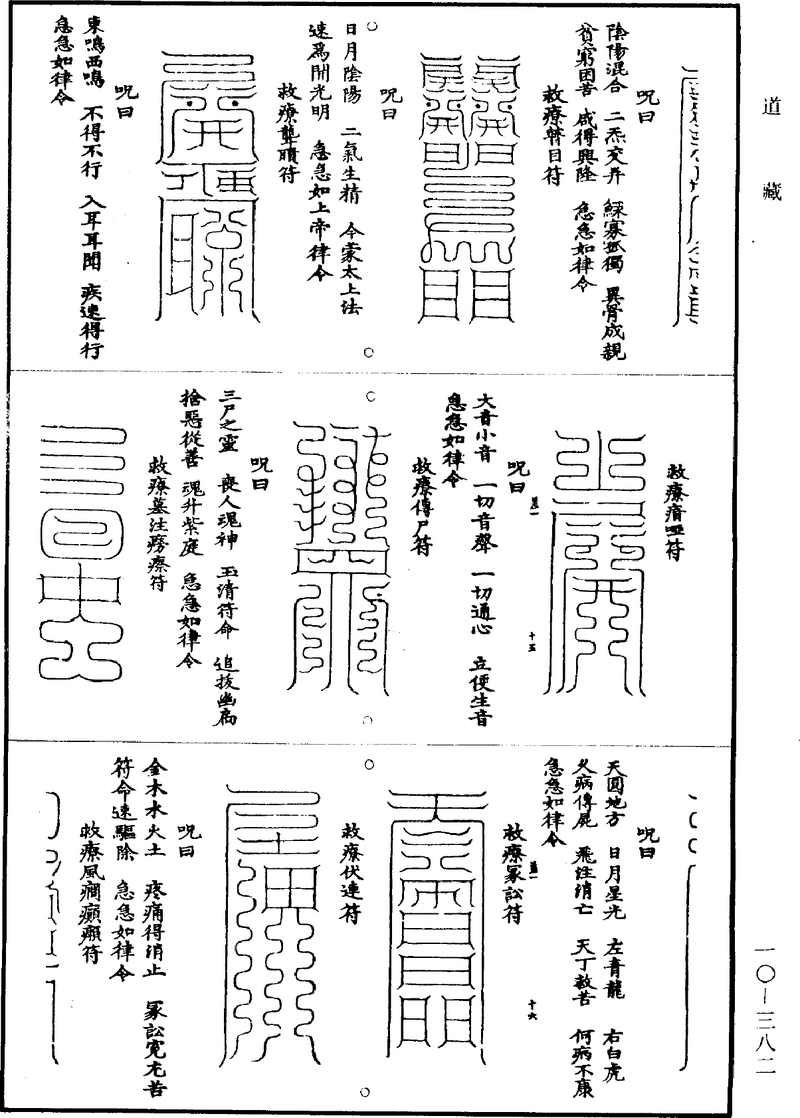 道藏
呪曰
陰陽混合　二炁交并　鰥寡孤獨　異骨成親
貧窮困苦　咸得興隆　急急如律令
救療瞽目符
呪曰
日月陰陽　二氣生精　今蒙太上法
速爲開光明　急急如上帝律令
救療聾聵符
呪曰
東鳴西鳴　不得不行　入耳耳聞　疾速得行
急急如律令
救療瘖啞符
呪曰
大音小音　一切音聲　一切通心　立便生音
急急如律令
救療傳尸符
十五
呪曰
三尸之靈　喪人魂神　玉清符命　追拔幽扃
捨惡從善　魂升紫庭　急急如律令
救療墓注癆瘵符
呪曰
天圓地方　日月星光　左青龍　右白虎
久病傳屍　飛注消亡　天丁救苦　何病不康
急急如律令
救療冢訟符
十六
救療伏連符
呪曰
金木水火土　疼痛得消止　冢訟冤尤苦
符命速驅除　急急如律令
救療風癇癲癩符
一〇—三八二